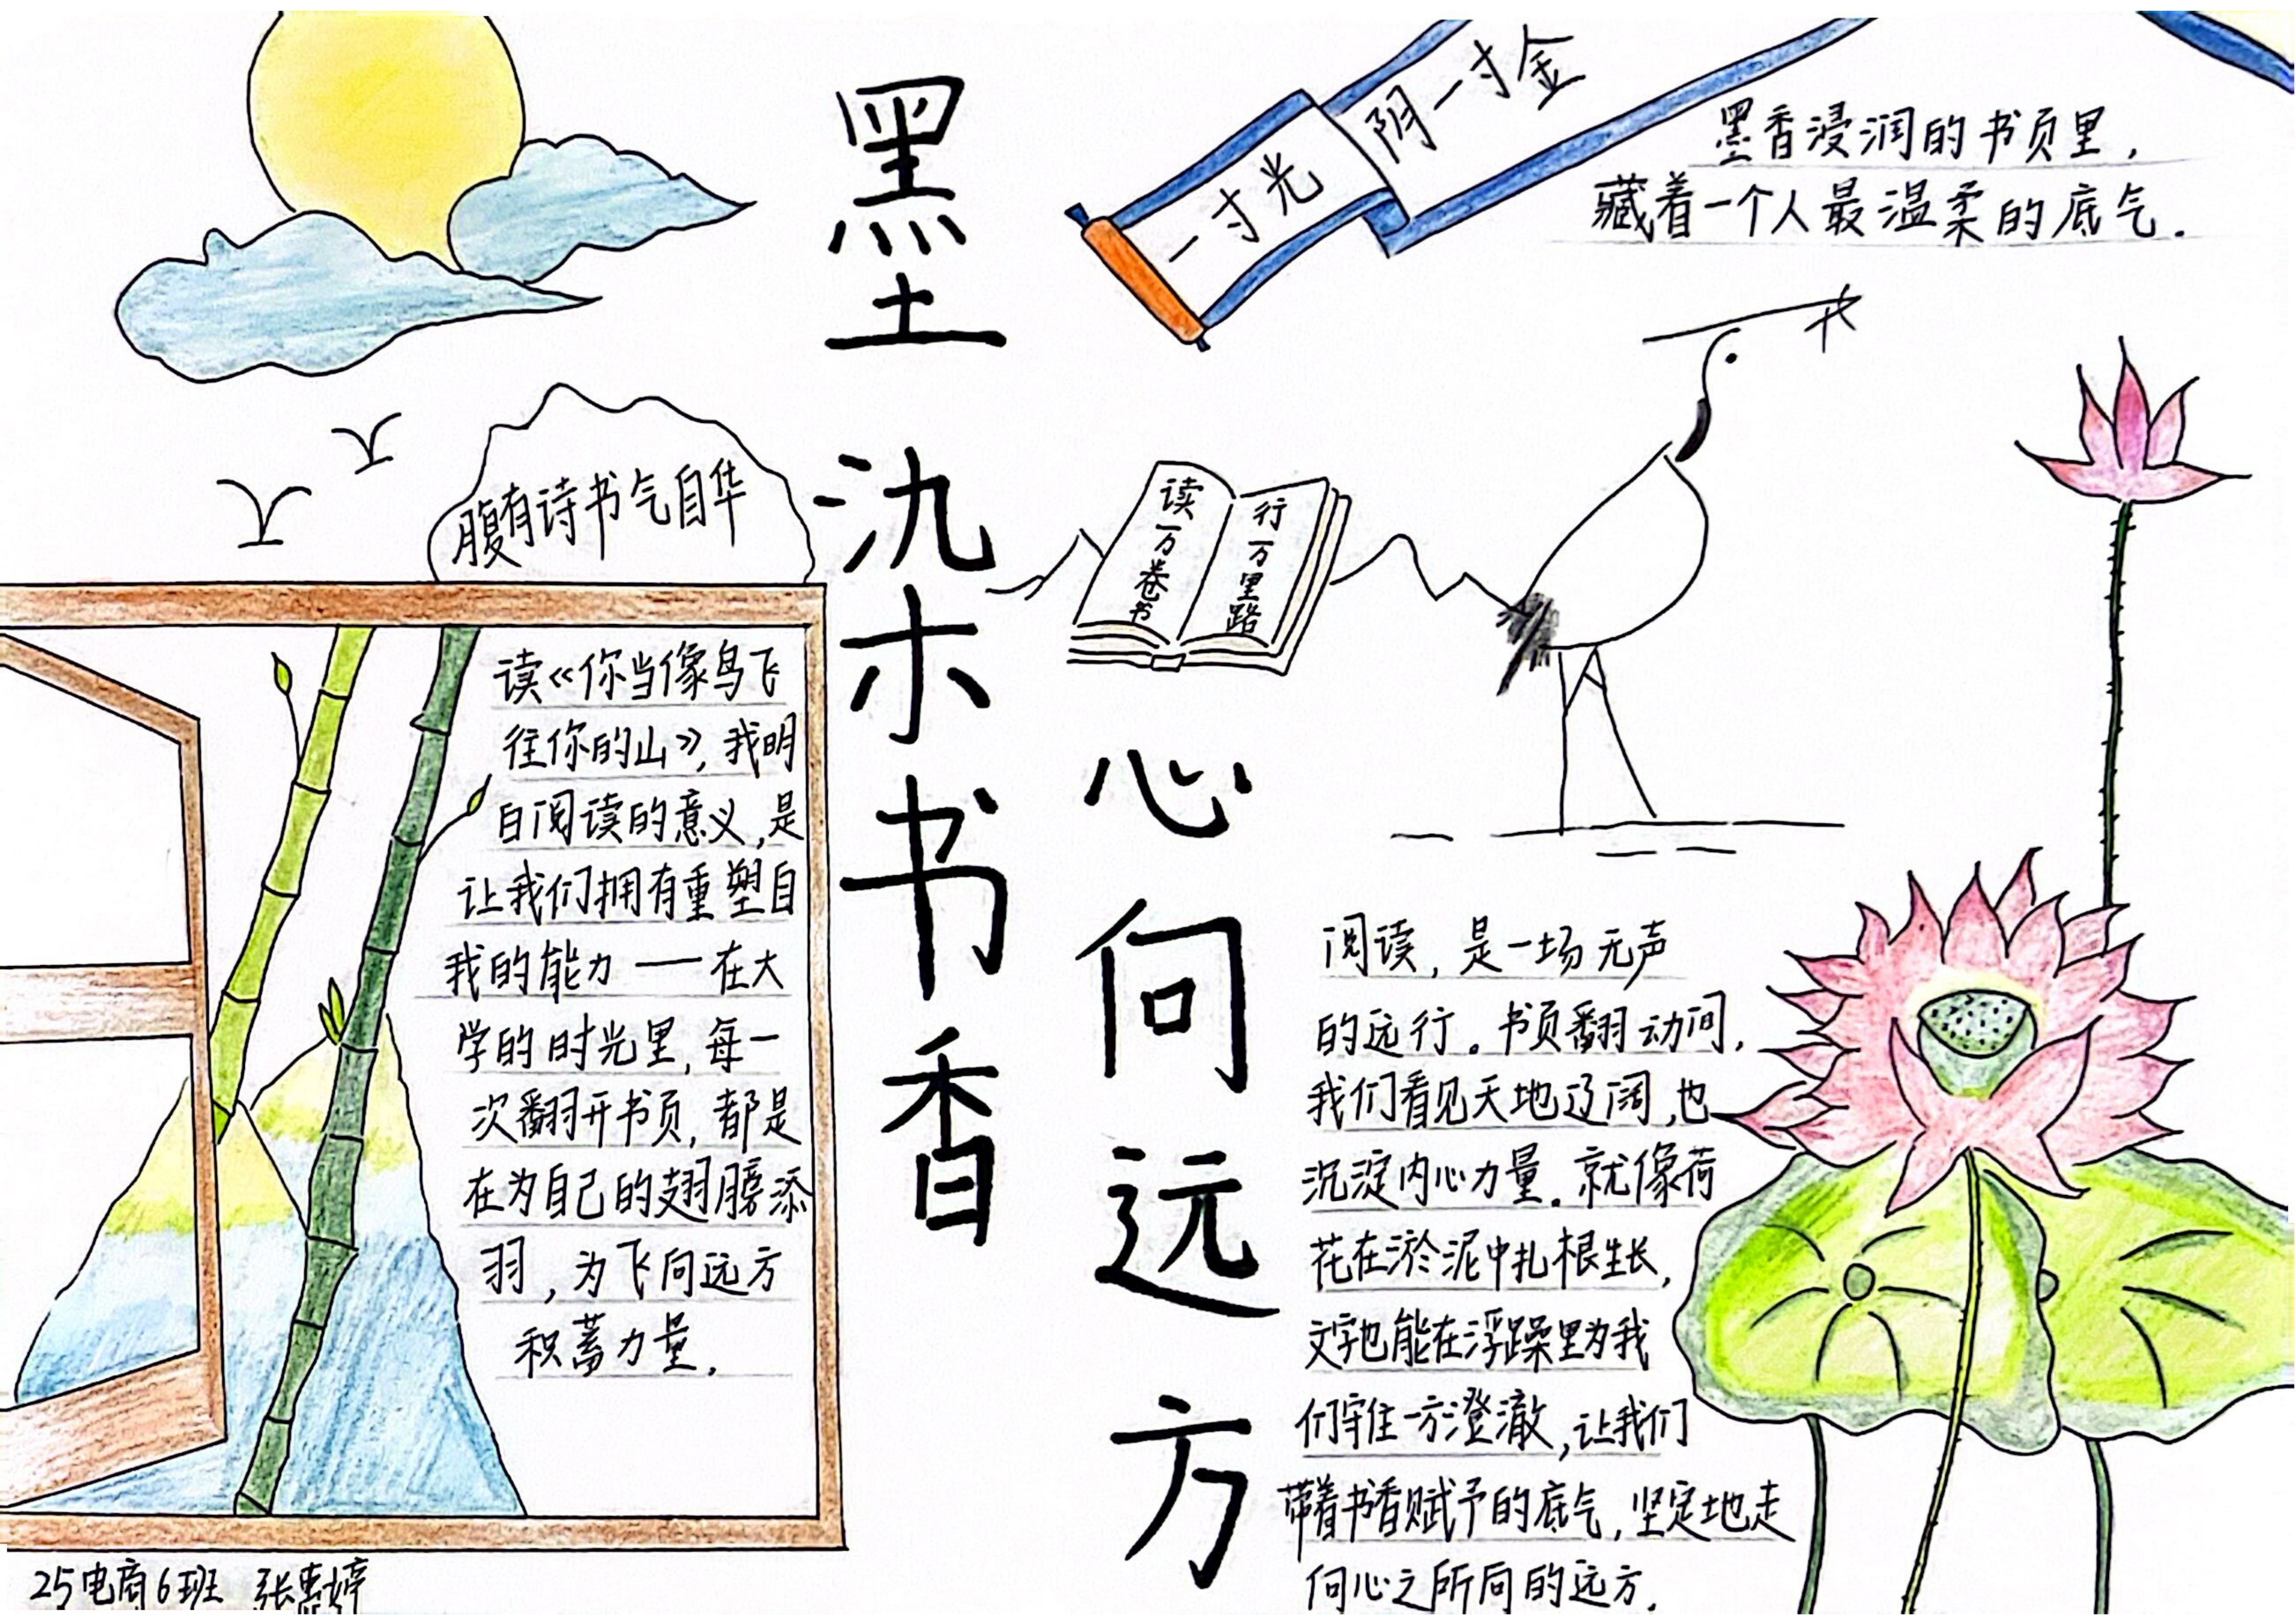 墨染书香
心向远方
一寸光
阴一寸金
墨香浸润的书页里，
藏着一个人最温柔的底气.
腹有诗书气自华
读一万卷书
行一万里路
读《你当像鸟飞
往你的山》，我明
白阅读的意义，是
让我们拥有重塑自
我的能力——在大
学的时光里，每一
次翻开书页，都是
在为自己的翅膀添
羽，为飞向远方
积蓄力量.
阅读，是一场无声
的远行。书页翻动间，
我们看见天地辽阔，也
沉淀内心力量。就像荷
花在淤泥中扎根生长，
文字也能在浮躁里为我
们守住一方澄澈，让我们
带着书香赋予的底气，坚定地走
向心之所向的远方.
25电商6班 张惠婷